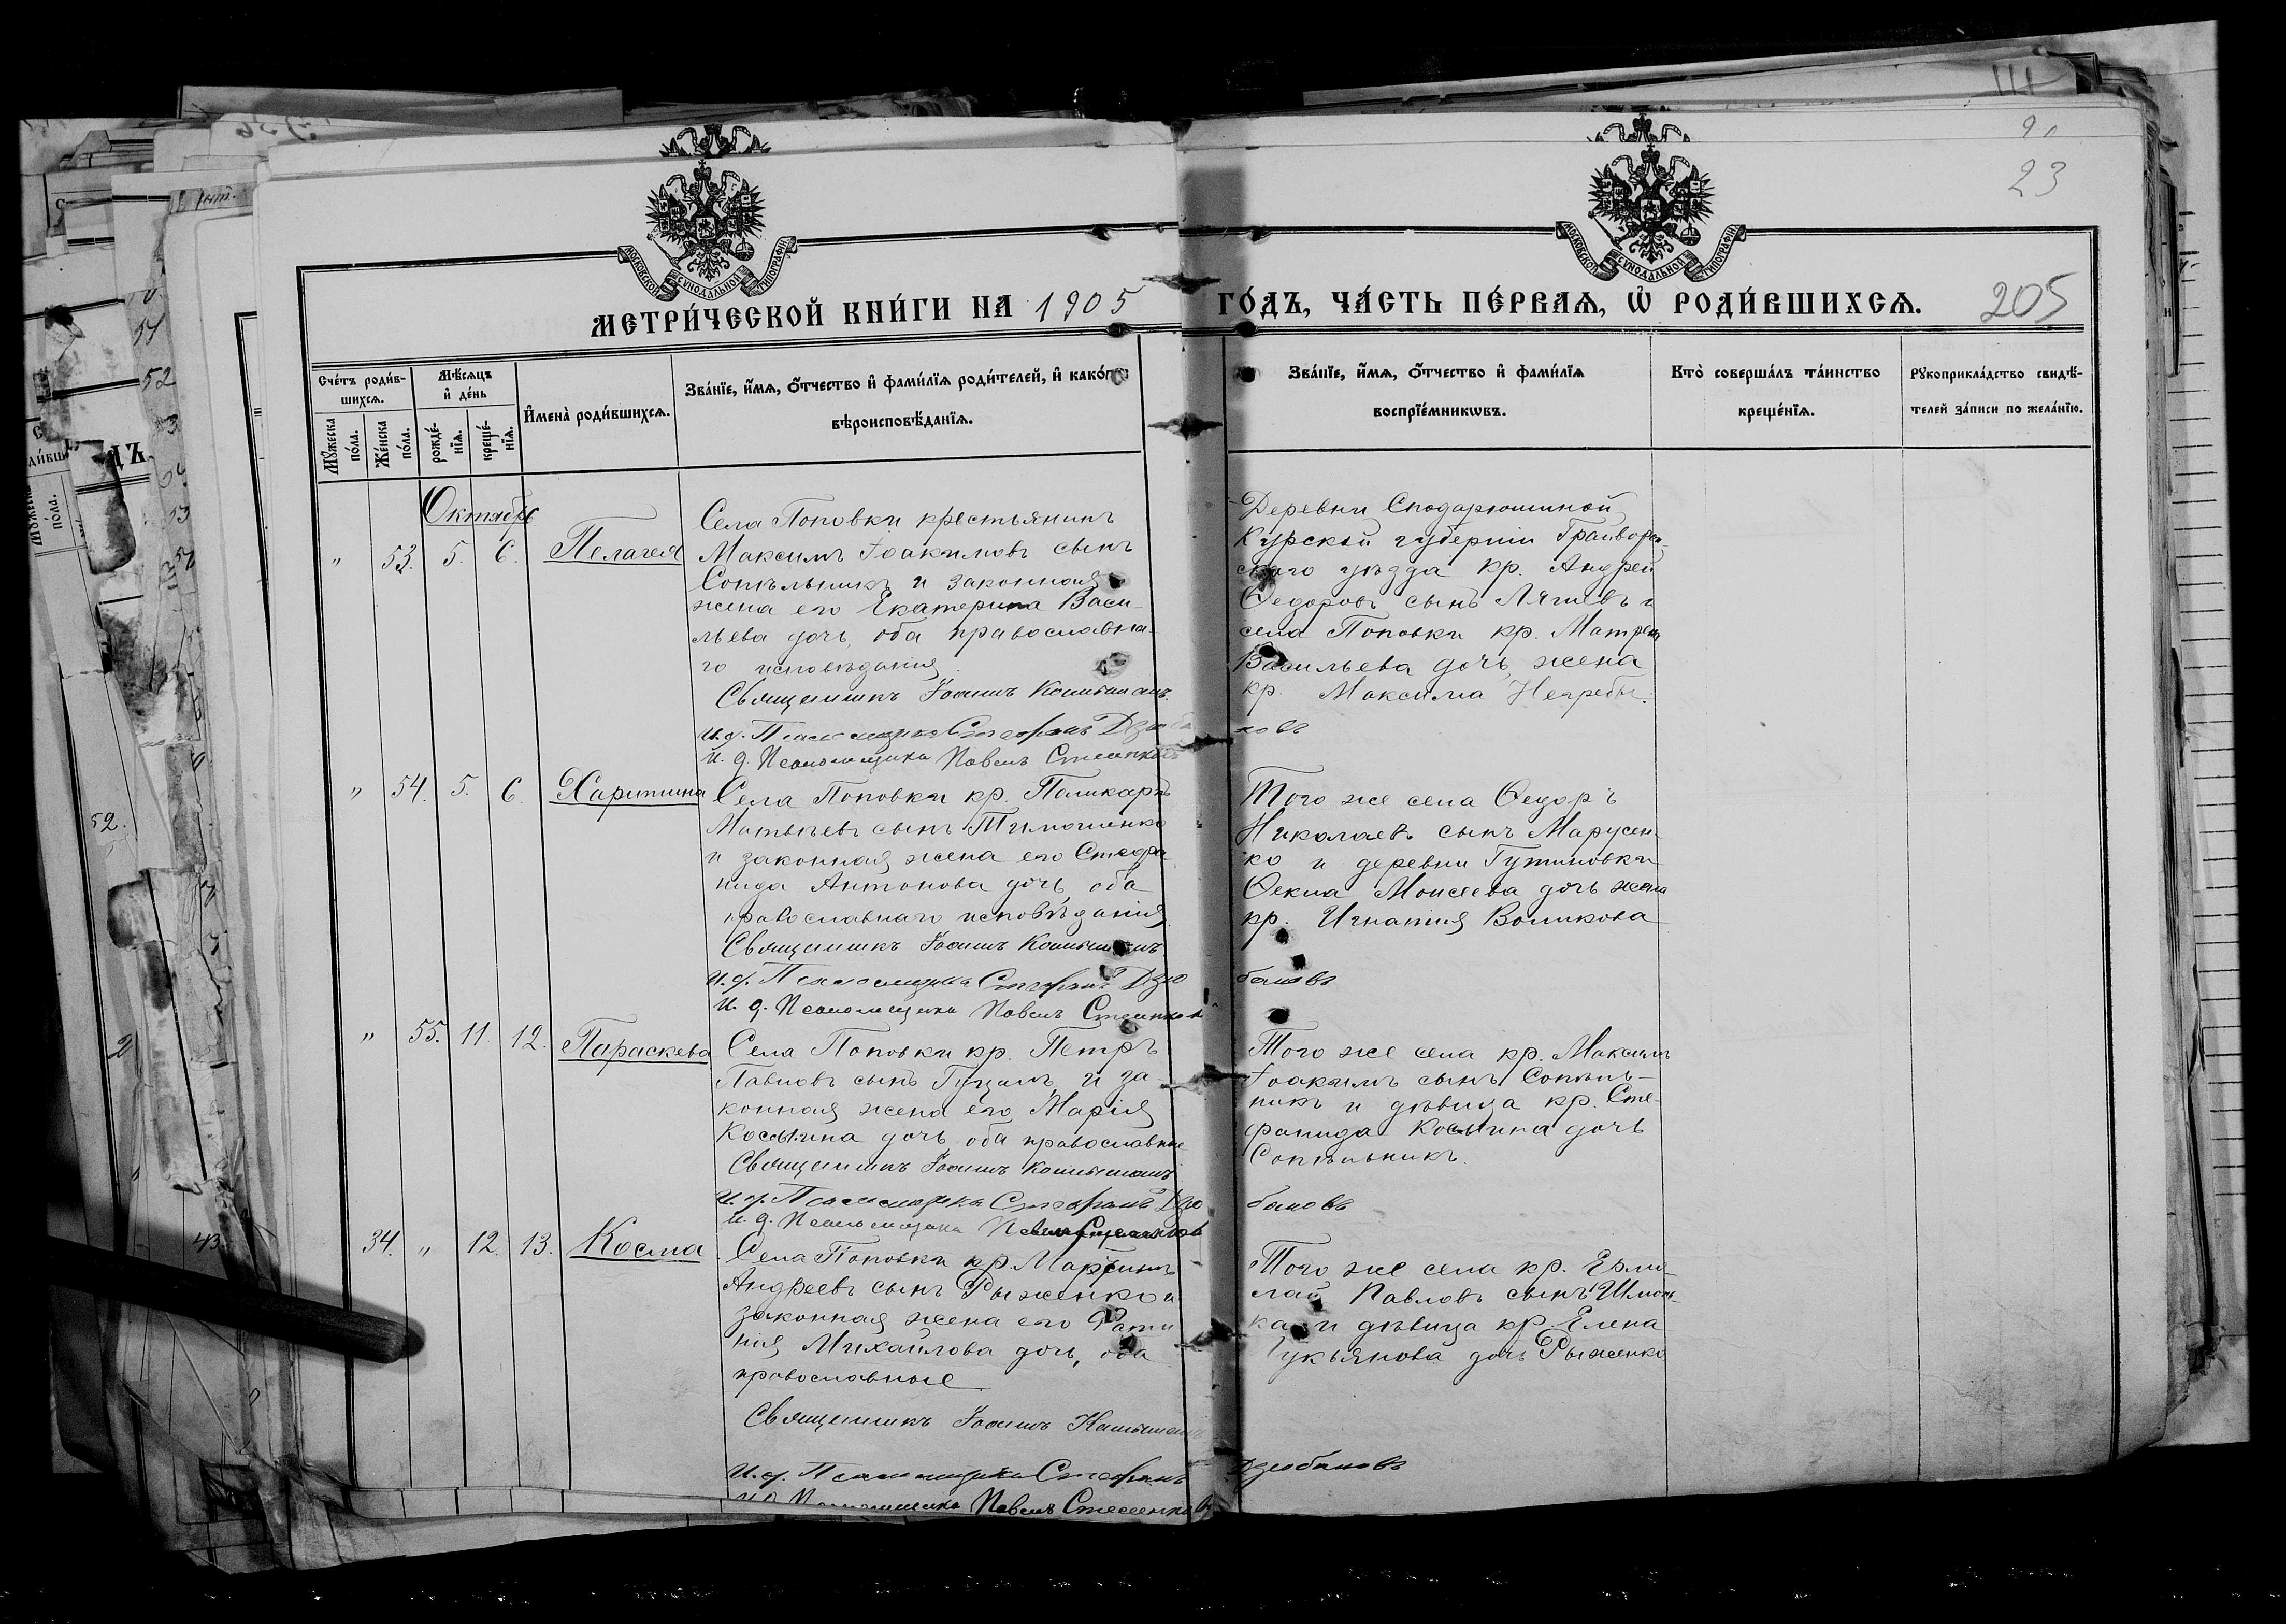 90
23
МОСКОВСКОЙ СѴНОДАЛЬНОЙ ТИПОГРАФІИ
МОСКОВСКОЙ СѴНОДАЛЬНОЙ ТИПОГРАФІИ
МЕТРИ́ЧЕСКОЙ КНИ́ГИ НА 1905 ГО́ДЪ, ЧА́СТЬ ПЕ́РВАЯ, Ѡ҆ РОДИ́ВШИХСЯ. 205
Сче́тъ роди́в-
шихся.
Мѣ́сяцъ
и҆ де́нь
Му́жеска по́ла.
Же́нска по́ла.
рожде́-
нїя.
креще́-
нїя.
И҆мена̀ роди́вшихся.
Зва́нїе, и҆́мя, ѻ҆́тчество и҆ фами́лїя роди́телей, и҆ како́гѡ
вѣроисповѣ́данїя.
Зва́нїе, и҆́мя, ѻ҆́тчество и҆ фами́лїя
воспрїе́мникѡвъ.
Кто̀ соверша́лъ та́инство
креще́нїя.
Рꙋкоприкла́дство свидѣ́-
телей за́писи по жела́нїю.
Октябрь
" 53. 5. 6. Пелагея
Села Поповки крестьянинъ
Максимъ Іоакимовъ сынъ
Сопѣльникъ и законная
жена его Екатерина Васи-
льева дочь, оба православна-
го исповѣданія
Священникъ Іоаннъ
И. д. Псаломщика Стефанъ Дзюбановъ
И. д. Псаломщика Павелъ
Деревни Сподарюшиной
Курской губерніи Грайворон-
скаго уѣзда кр. Андрей
Ѳедоровъ сынъ и
села Поповки кр. Матрена
Васильева дочь, жена
кр. Максима
" 54. 5. 6. Харитина
Села Поповки кр. Поликарпъ
Матвѣевъ сынъ Тимошенко
и законная жена его Стефа
нида Антонова дочь, оба
православнаго исповѣданія
Священникъ Іоаннъ
И. д. Псаломщика Стефанъ Дзюбановъ
И. д. Псаломщика Павелъ
Того же села Ѳедоръ
Николаевъ сынъ Марусен-
ко и деревни Гутниловки
Ѳекла Моисеева дочь жена
кр. Игнатія Воликова
" 55. 11. 12. Параскева
Села Поповки кр. Петръ
Павловъ сынъ и за-
конная жена его Марія
Косьмина дочь оба православные
Священникъ Іоаннъ
И. д. Псаломщика Стефанъ Дзюбановъ
И. д. Псаломщика Павелъ
Того же села кр. Максимъ
Іоакимъ сынъ Сопѣль-
никъ и дѣвица кр. Сте-
фанида Косьмина дочь
Сопѣльникъ.
34. " 12. 13. Косма
Села Поповки кр. Мартинъ
Андреевъ сынъ Рыженко и
законная жена его Фоти
нія Михаилова дочь, оба
православные
Священникъ Іоаннъ
И. д. Псаломщика Стефанъ Дзюбановъ
И. д. Псаломщика Павелъ
Того же села кр. Ермо-
лай Павловъ сынъ
и дѣвица кр. Елена
Лукьянова дочь Рыженко